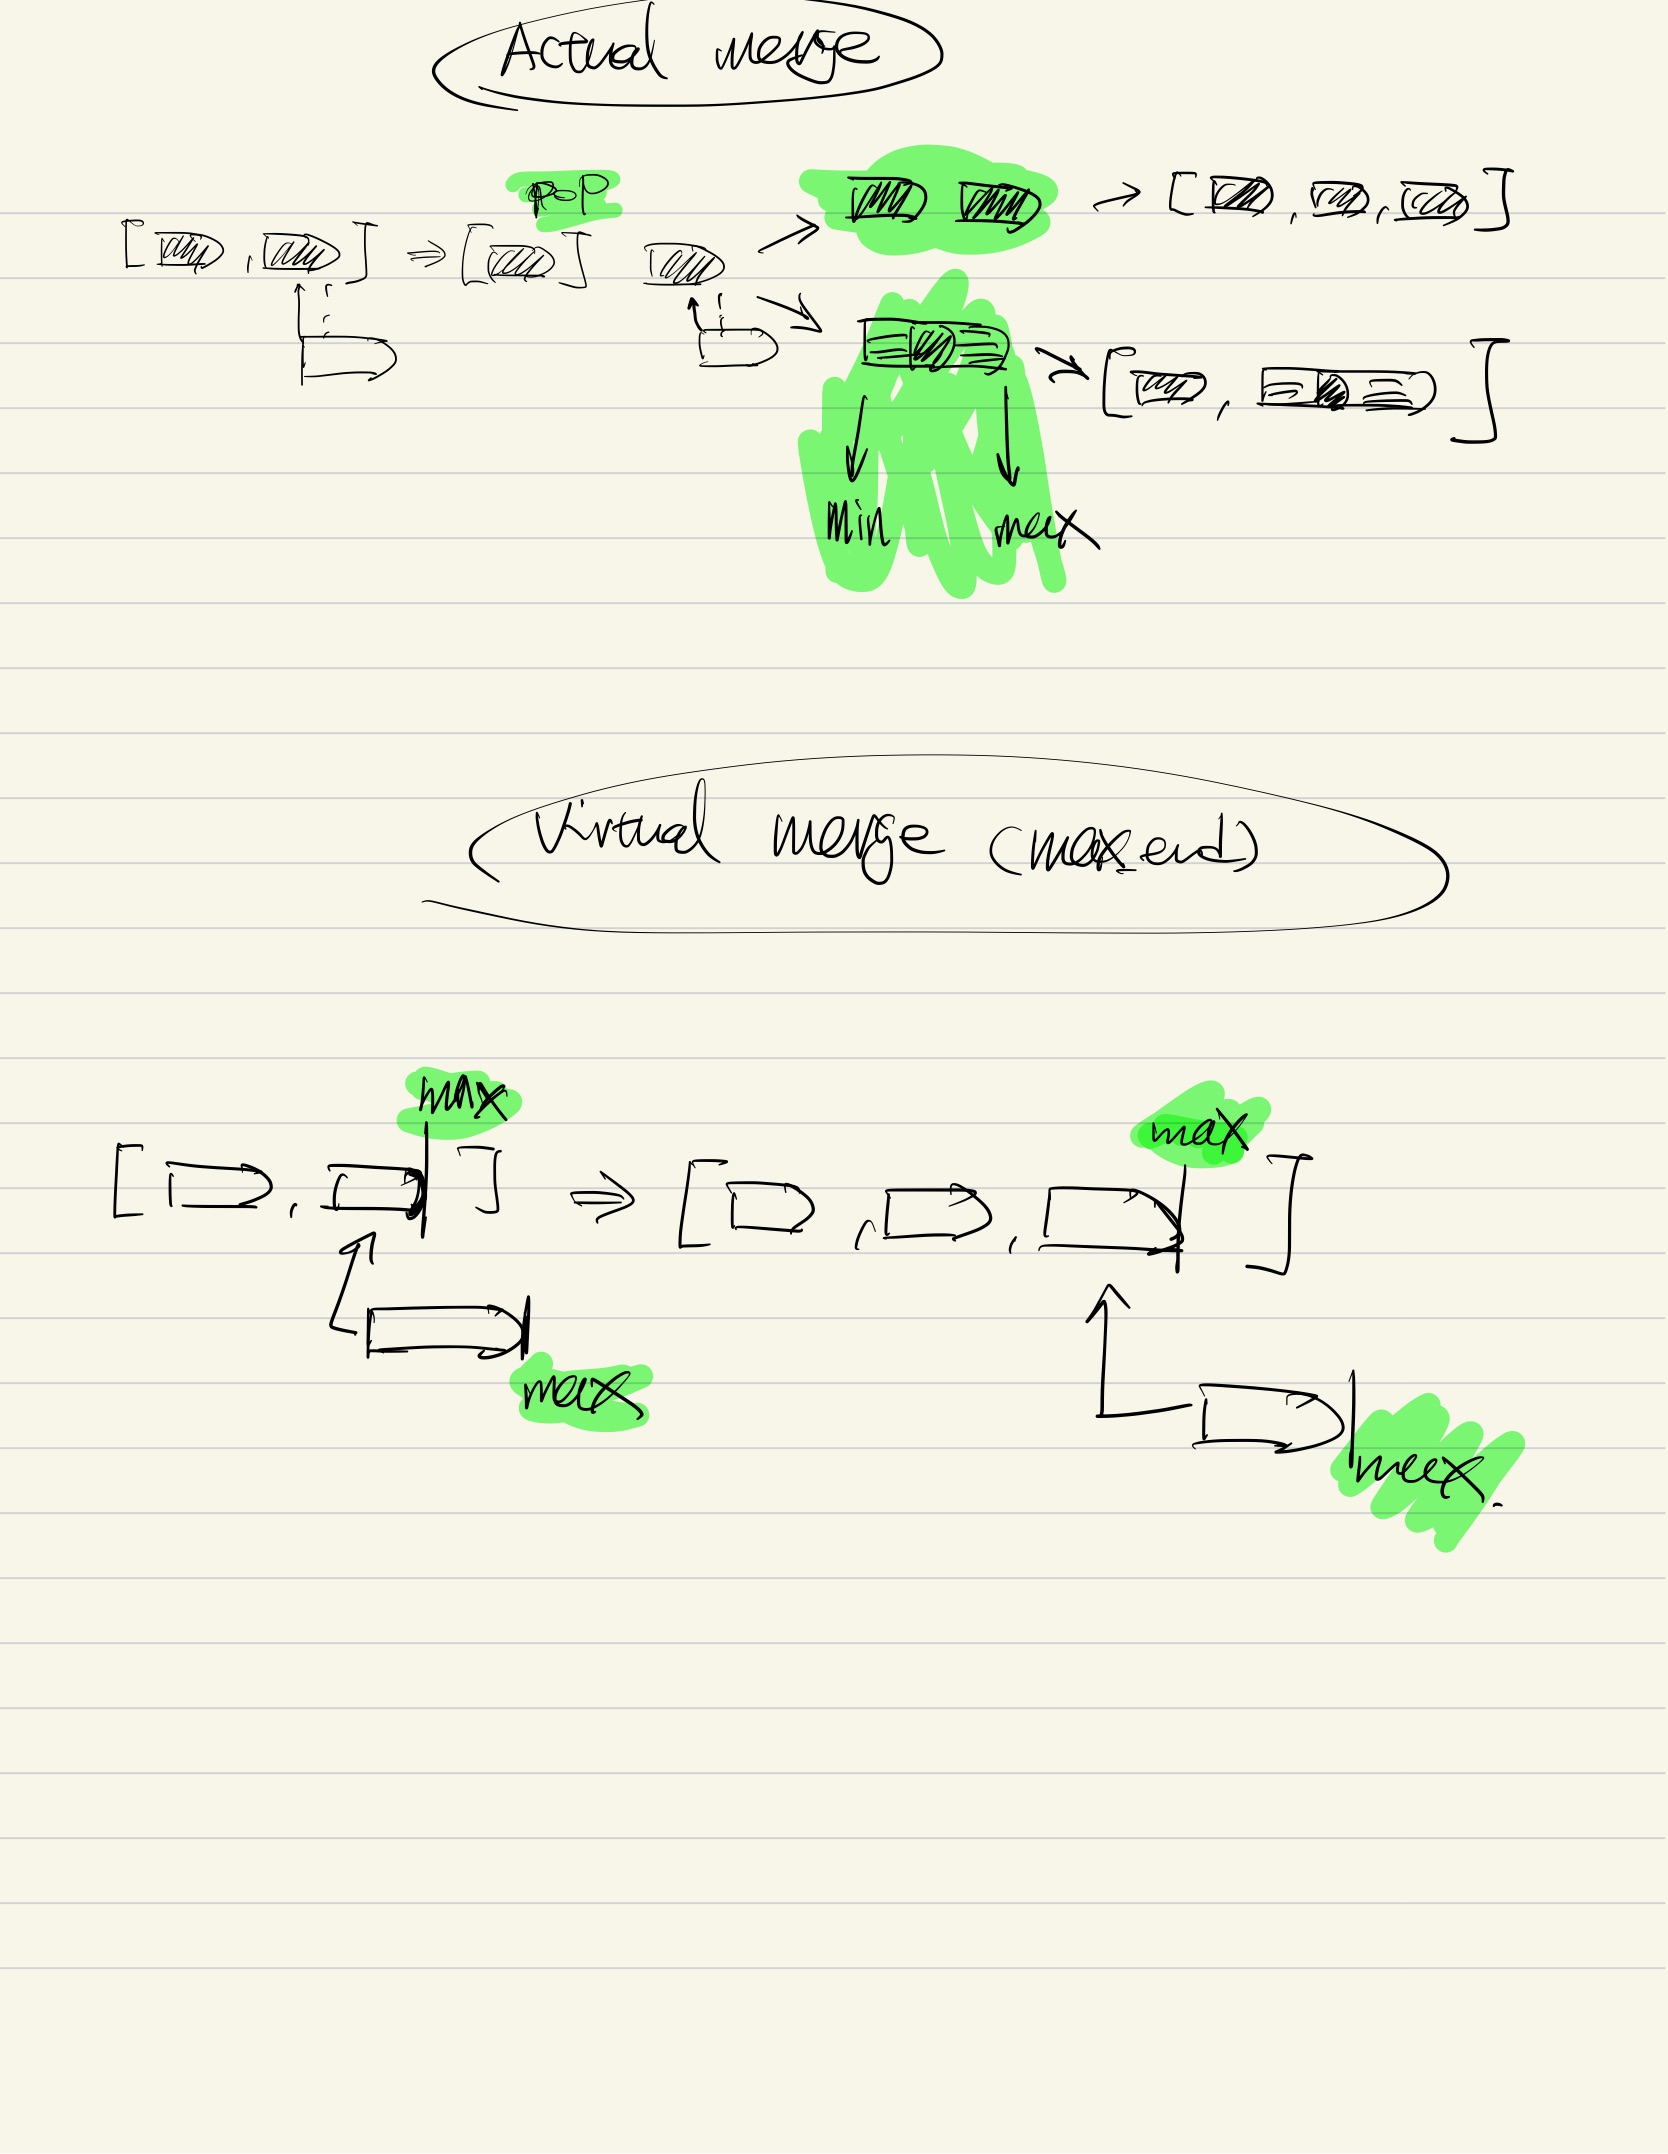 Actual merge
pop
[ , ] ⇒ [ ] → [ , , ]
[ , ]
Min max
Virtual merge (max_end)
max max
[ , ] ⇒ [ , , ]
max
max.